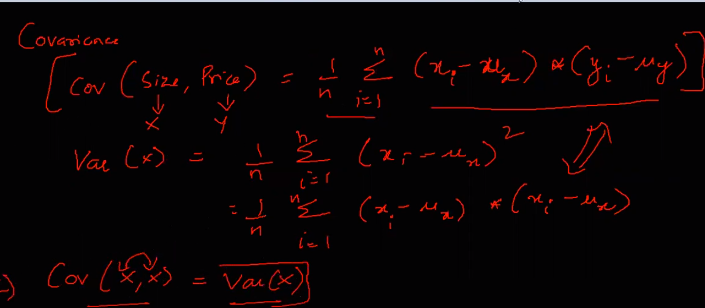 Covariance
[Cov (Size, Price) = 1/n Σ_{i=1}^{n} (x_i - μ_x) * (y_i - μ_y)]
X Y
Var (x) = 1/n Σ_{i=1}^{n} (x_i - μ_x)^2
= 1/n Σ_{i=1}^{n} (x_i - μ_x) * (x_i - μ_x)
) Cov (x, x) = Var(x)